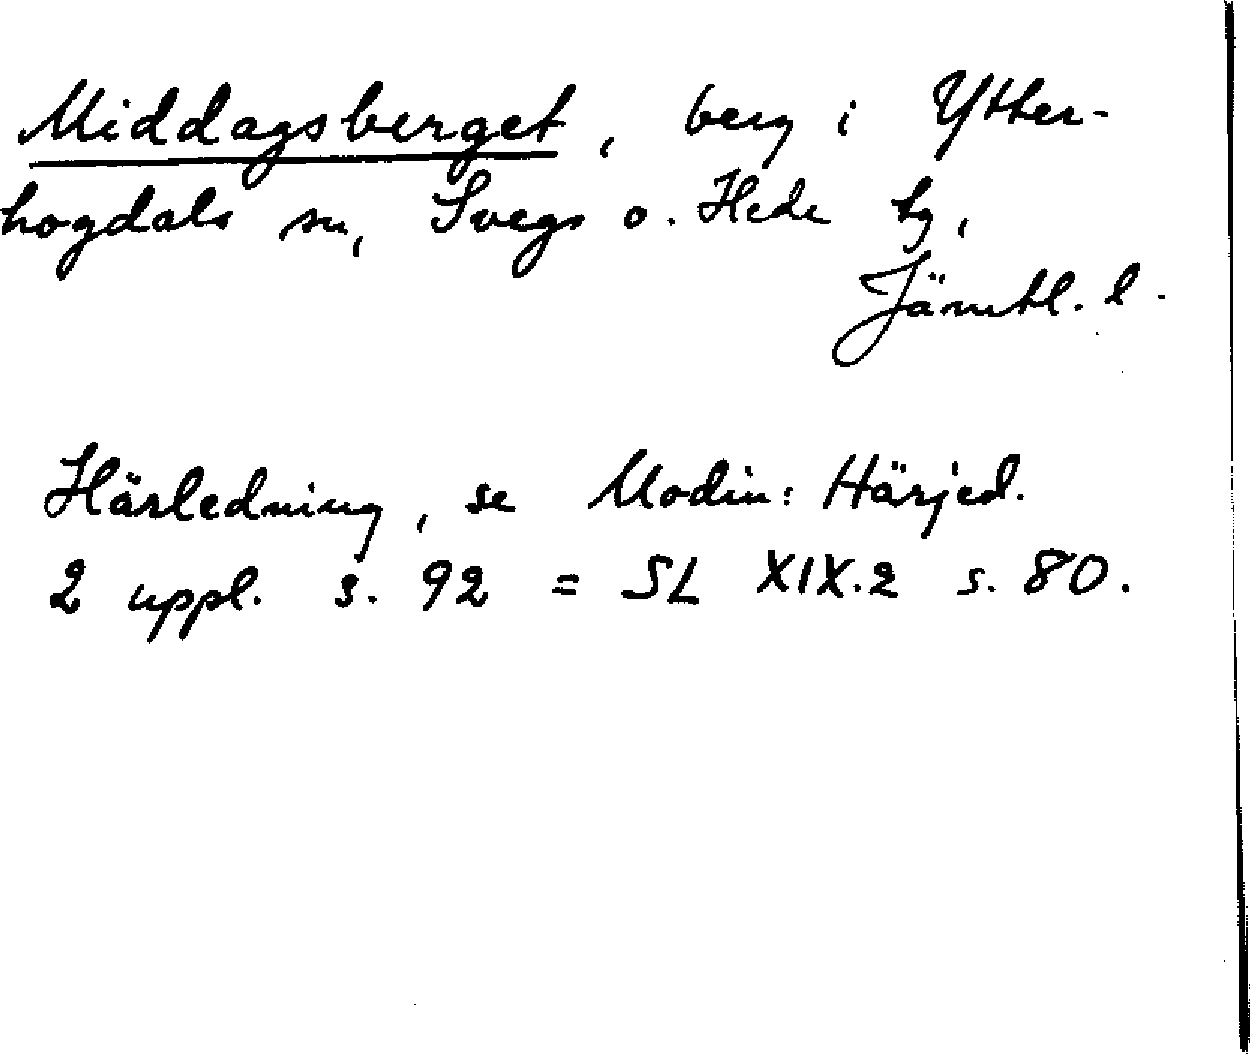 Middagsberget, berg i Ytter-
hogdals sn, Svegs o. Hede tg,
Jämtl. l.
Härledning, se Modin: Härjed.
2 uppl. s. 92 = SL XIX.2 s. 80.